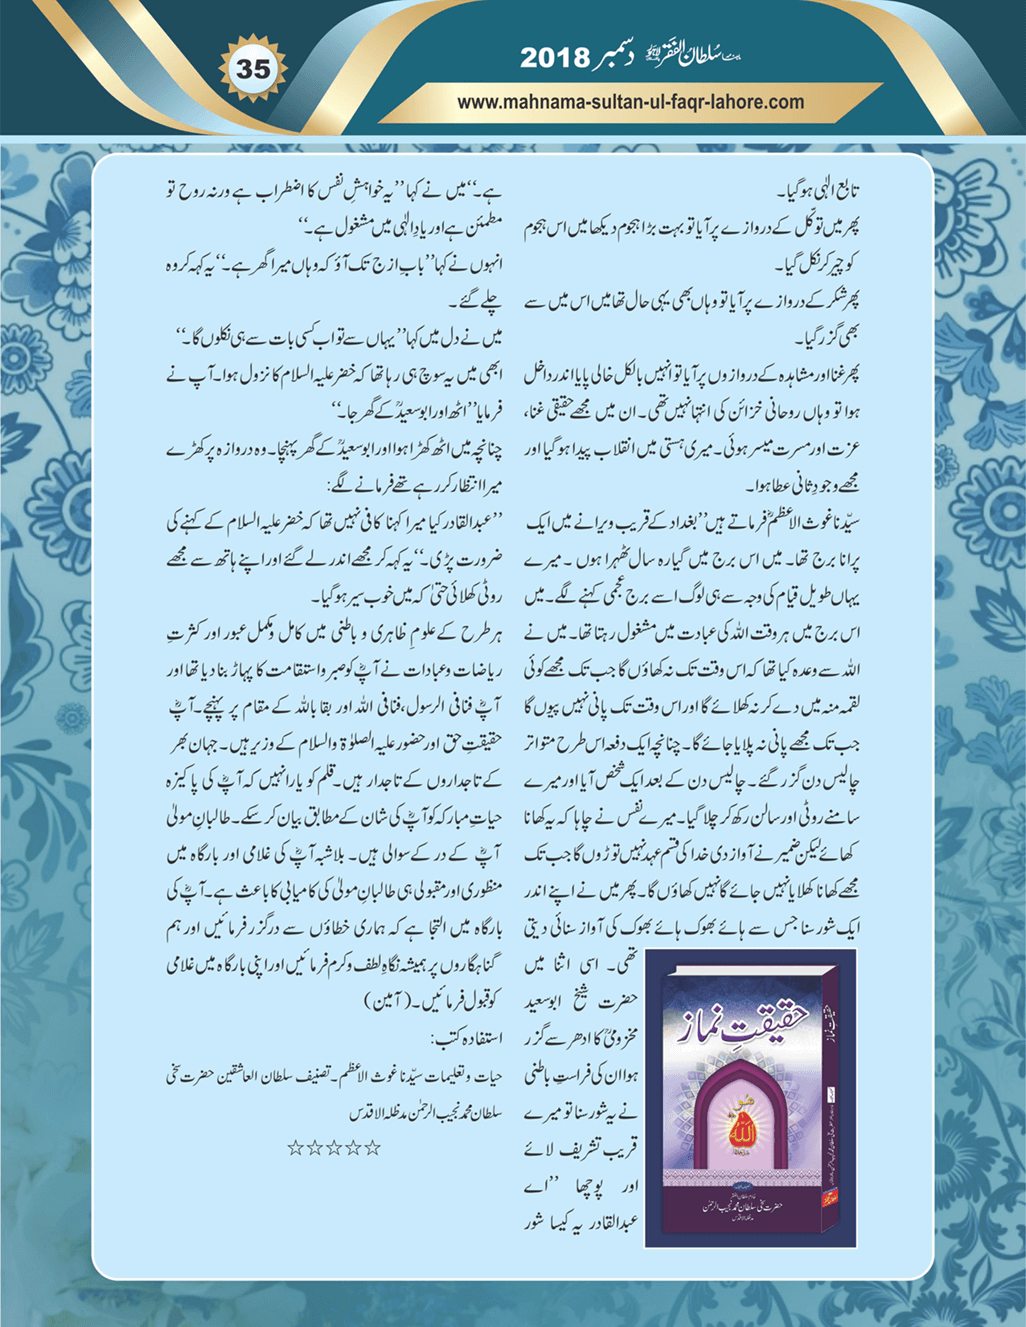 35
ماہنامہ سلطان الفقر لاہور دسمبر 2018
www.mahnama-sultan-ul-faqr-lahore.com
تابع الٰہی ہوگیا۔
پھر میں توکّل کے دروازے پر آیا تو بہت بڑا ہجوم دیکھا میں اس ہجوم
کو چیر کر نکل گیا۔
پھر شکر کے دروازے پر آیا تو وہاں بھی یہی حال تھا میں اس میں سے
بھی گزر گیا۔
پھر غنا اور مشاہدہ کے دروازوں پر آیا تو انہیں بالکل خالی پایا اندر داخل
ہوا تو وہاں روحانی خزائن کی انتہا نہیں تھی۔ ان میں مجھے حقیقی غنا،
عزت اور مسرت میسر ہوئی۔ میری ہستی میں انقلاب پیدا ہوگیا اور
مجھے وجودِ ثانی عطا ہوا۔
سیّدنا غوث الاعظمؓ فرماتے ہیں ’’بغداد کے قریب ویرانے میں ایک
پرانا برج تھا۔ میں اس برج میں گیارہ سال ٹھہرا ہوں ۔ میرے
یہاں طویل قیام کی وجہ سے ہی لوگ اسے برج عجمی کہنے لگے۔ میں
اس برج میں ہر وقت اللہ کی عبادت میں مشغول رہتا تھا۔ میں نے
اللہ سے وعدہ کیا تھا کہ اس وقت تک نہ کھاؤں گا جب تک مجھے کوئی
لقمہ منہ میں دے کر نہ کھلائے گا اور اس وقت تک پانی نہیں پیوں گا
جب تک مجھے پانی نہ پلایا جائے گا۔ چنانچہ ایک دفعہ اس طرح متواتر
چالیس دن گزر گئے۔ چالیس دن کے بعد ایک شخص آیا اور میرے
سامنے روٹی اور سالن رکھ کر چلا گیا۔ میرے نفس نے چاہا کہ یہ کھانا
کھائے لیکن ضمیر نے آواز دی خدا کی قسم عہد نہیں توڑوں گا جب تک
مجھے کھانا کھلایا نہیں جائے گا نہیں کھاؤں گا۔ پھر میں نے اپنے اندر
ایک شور سنا جس سے ہائے بھوک ہائے بھوک کی آواز سنائی دیتی
تھی۔ اسی اثنا میں
حضرت شیخ ابوسعید
مخزومیؒ کا ادھر سے گزر
ہوا ان کی فراستِ باطنی
نے یہ شور سنا تو میرے
قریب تشریف لائے
اور پوچھا ’’اے
عبدالقادر یہ کیسا شور
حقیقتِ نماز
حقیقتِ نماز
ھُو
اللہ
حضرت سخی سلطان محمد نجیب الرحمٰن
مدظلہ الاقدس
ہے۔‘‘ میں نے کہا ’’یہ خواہشِ نفس کا اضطراب ہے ورنہ روح تو
مطمئن ہے اور یادِ الٰہی میں مشغول ہے۔‘‘
انہوں نے کہا ’’باب ازج تک آؤ کہ وہاں میرا گھر ہے۔‘‘ یہ کہہ کر وہ
چلے گئے۔
میں نے دل میں کہا ’’یہاں سے تو اب کسی بات سے ہی نکلوں گا۔‘‘
ابھی میں یہ سوچ ہی رہا تھا کہ خضر علیہ السلام کا نزول ہوا۔ آپ نے
فرمایا ’’اٹھ اور ابو سعیدؒ کے گھر جا۔‘‘
چنانچہ میں اٹھ کھڑا ہوا اور ابو سعیدؒ کے گھر پہنچا۔ وہ دروازہ پر کھڑے
میرا انتظار کر رہے تھے فرمانے لگے:
’’عبدالقادر کیا میرا کہنا کافی نہیں تھا کہ خضر علیہ السلام کے کہنے کی
ضرورت پڑی۔‘‘ یہ کہہ کر مجھے اندر لے گئے اور اپنے ہاتھ سے مجھے
روٹی کھلائی حتیٰ کہ میں خوب سیر ہوگیا۔
ہر طرح کے علومِ ظاہری و باطنی میں کامل و مکمل عبور اور کثرتِ
ریاضات و عبادات نے آپؓ کو صبر و استقامت کا پہاڑ بنا دیا تھا اور
آپؓ فنا فی الرسول، فنا فی اللہ اور بقا باللہ کے مقام پر پہنچے۔ آپؓ
حقیقتِ حق اور حضور علیہ الصلوٰۃ والسلام کے وزیر ہیں۔ جہان بھر
کے تاجداروں کے تاجدار ہیں۔ قلم کو یارا نہیں کہ آپؓ کی پاکیزہ
حیاتِ مبارکہ کو آپؓ کی شان کے مطابق بیان کر سکے۔ طالبانِ مولیٰ
آپؓ کے در کے سوالی ہیں۔ بلاشبہ آپؓ کی غلامی اور بارگاہ میں
منظوری اور مقبولی ہی طالبانِ مولیٰ کی کامیابی کا باعث ہے۔ آپؓ کی
بارگاہ میں التجا ہے کہ ہماری خطاؤں سے درگزر فرمائیں اور ہم
گناہگاروں پر ہمیشہ نگاہِ لطف و کرم فرمائیں اور اپنی بارگاہ میں غلامی
کو قبول فرمائیں۔ (آمین)
استفادہ کتب:
حیات و تعلیمات سیّدنا غوث الاعظم۔ تصنیف سلطان العاشقین حضرت سخی
سلطان محمد نجیب الرحمٰن مدظلہ الاقدس
☆☆☆☆☆